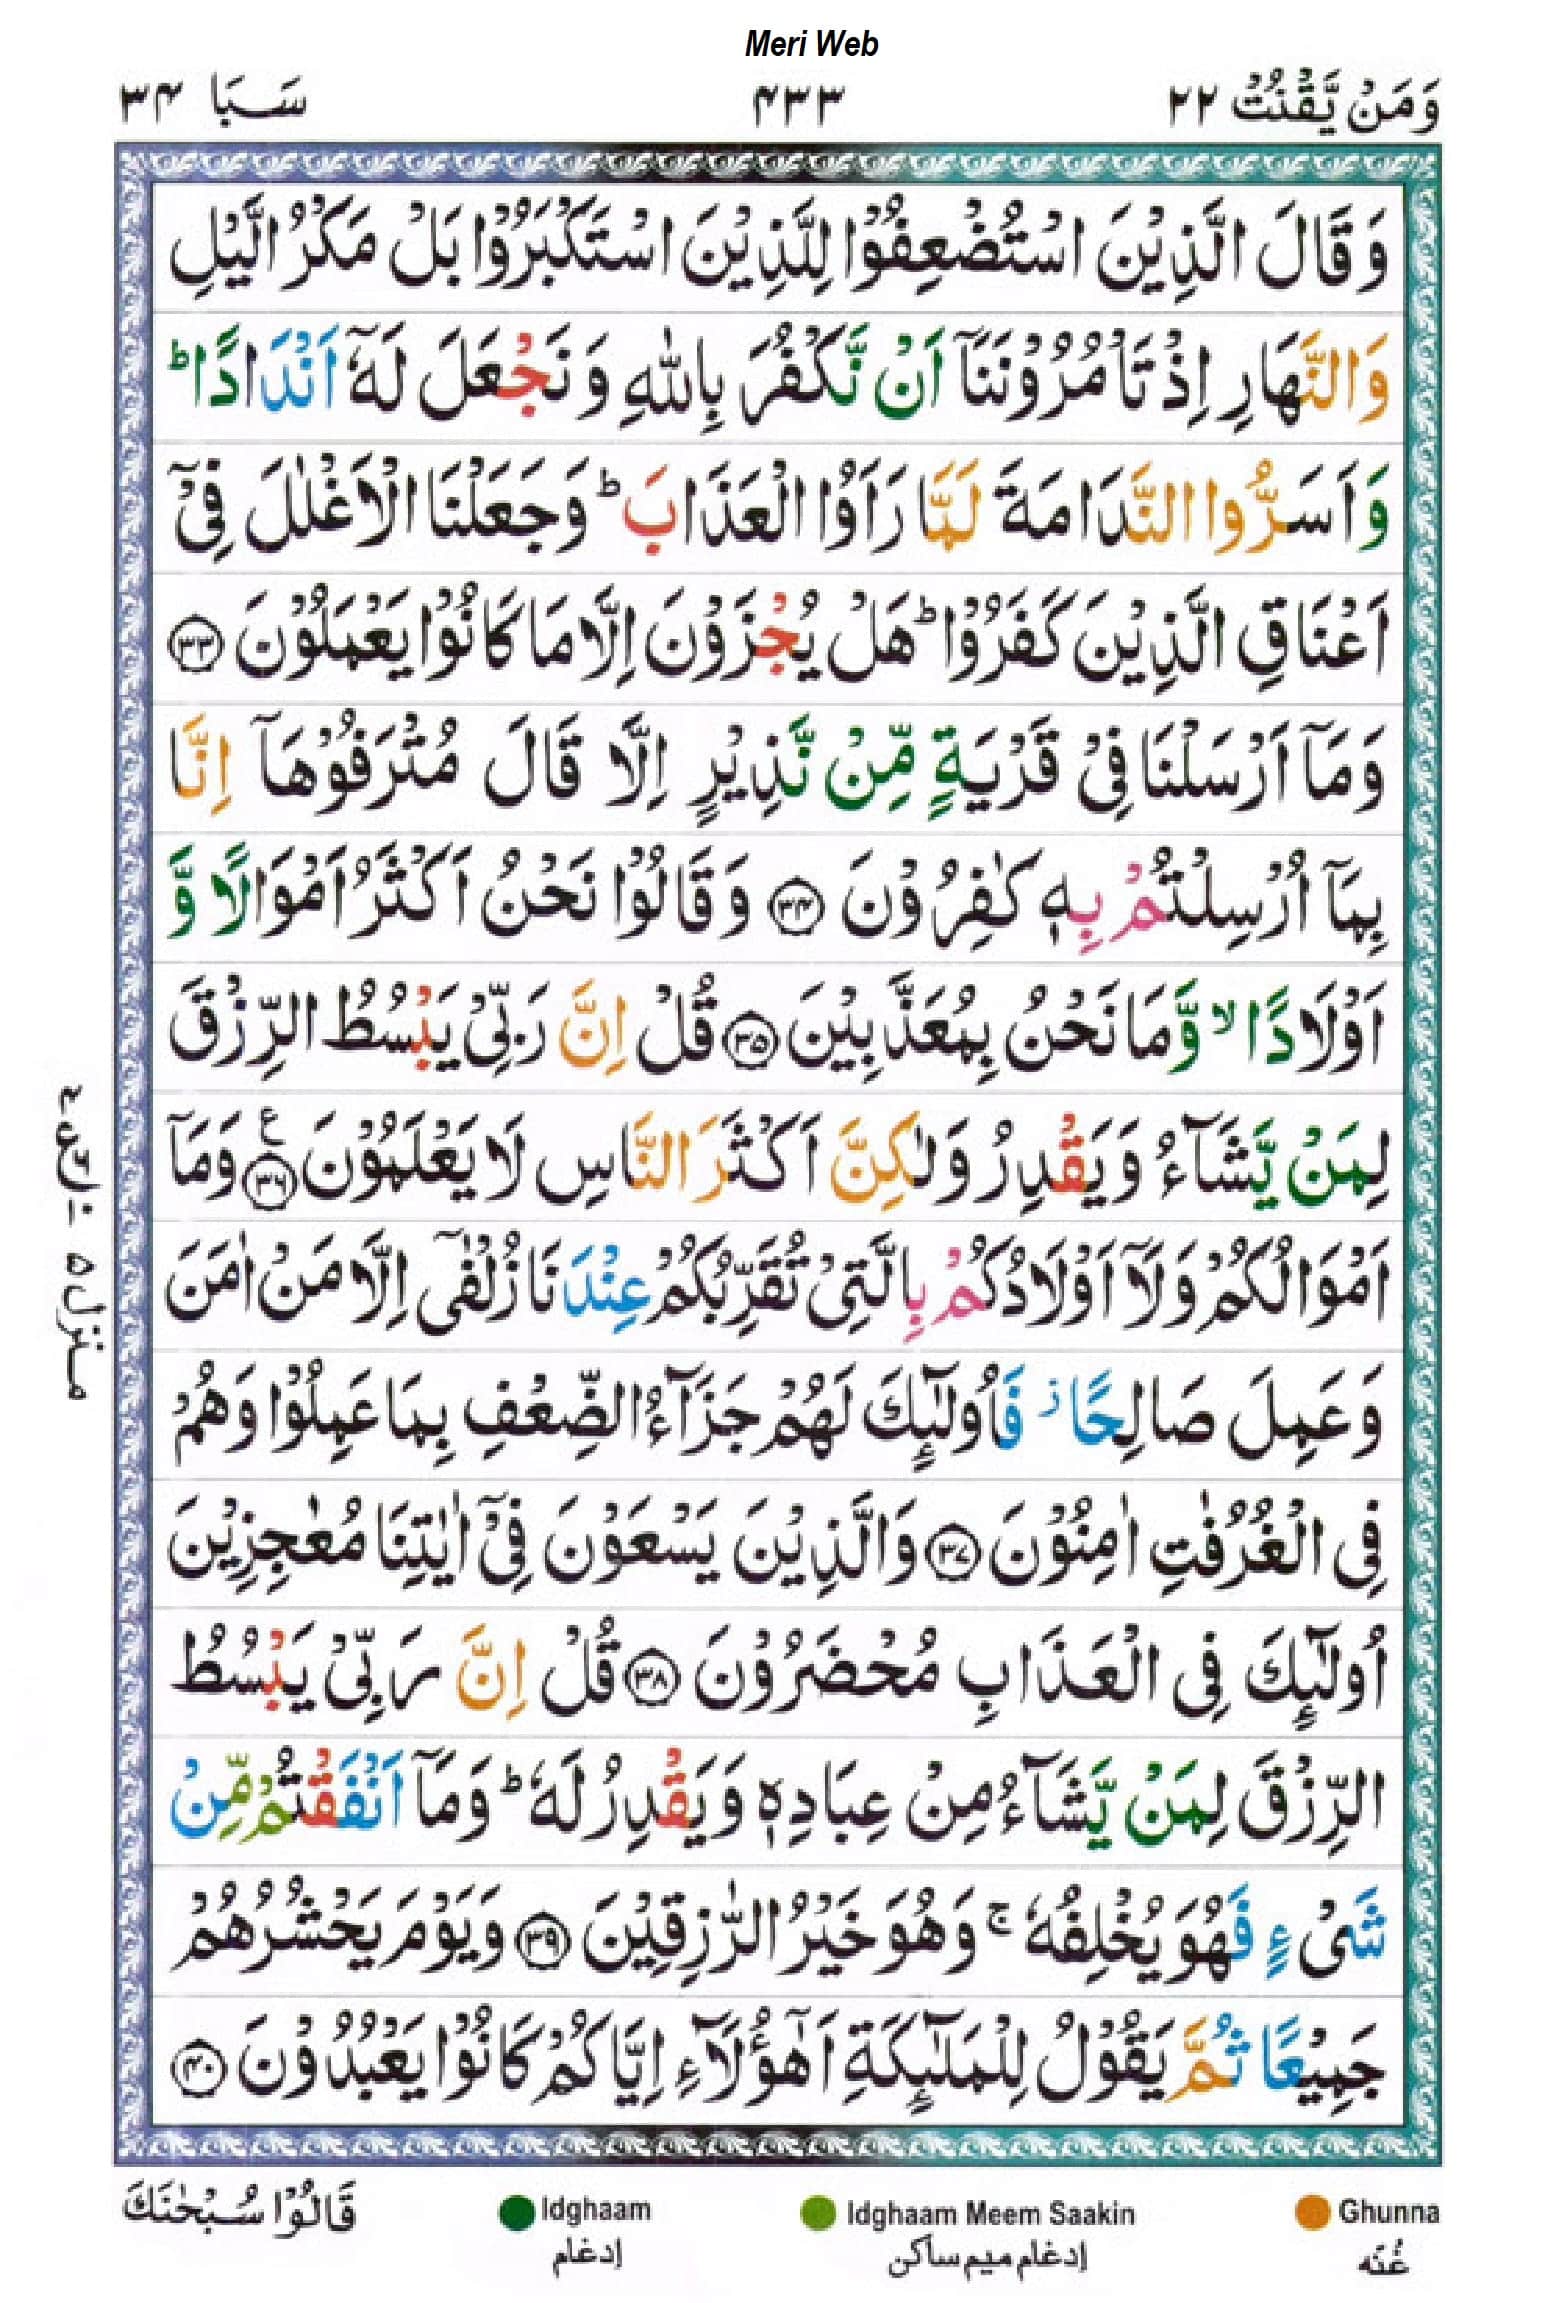 Meri Web
وَمَنْ يَّقْنُتْ ٢٢
٤٣٣
سَبَا ٣٤
وَقَالَ الَّذِيْنَ اسْتُضْعِفُوْا لِلَّذِيْنَ اسْتَكْبَرُوْا بَلْ مَكْرُ الَّيْلِ
وَالنَّهَارِ اِذْ تَاْمُرُوْنَنَاۤ اَنْ نَّكْفُرَ بِاللّٰهِ وَنَجْعَلَ لَهٗۤ اَنْدَادًا ؕ
وَاَسَرُّوا النَّدَامَةَ لَمَّا رَاَوُا الْعَذَابَ ؕ وَجَعَلْنَا الْاَغْلٰلَ فِيْۤ
اَعْنَاقِ الَّذِيْنَ كَفَرُوْا ؕ هَلْ يُجْزَوْنَ اِلَّا مَا كَانُوْا يَعْمَلُوْنَ ﴿٣٣﴾
وَمَاۤ اَرْسَلْنَا فِيْ قَرْيَةٍ مِّنْ نَّذِيْرٍ اِلَّا قَالَ مُتْرَفُوْهَاۤ اِنَّا
بِمَاۤ اُرْسِلْتُمْ بِهٖ كٰفِرُوْنَ ﴿٣٤﴾ وَقَالُوْا نَحْنُ اَكْثَرُ اَمْوَالًا وَّ
اَوْلَادًا ۙ وَّمَا نَحْنُ بِمُعَذَّبِيْنَ ﴿٣٥﴾ قُلْ اِنَّ رَبِّيْ يَبْسُطُ الرِّزْقَ
لِمَنْ يَّشَآءُ وَيَقْدِرُ وَلٰكِنَّ اَكْثَرَ النَّاسِ لَا يَعْلَمُوْنَ ﴿٣٦﴾ ع وَمَاۤ
اَمْوَالُكُمْ وَلَاۤ اَوْلَادُكُمْ بِالَّتِيْ تُقَرِّبُكُمْ عِنْدَنَا زُلْفٰىۤ اِلَّا مَنْ اٰمَنَ
وَعَمِلَ صَالِحًا ز فَاُولٰٓئِكَ لَهُمْ جَزَآءُ الضِّعْفِ بِمَا عَمِلُوْا وَهُمْ
فِي الْغُرُفٰتِ اٰمِنُوْنَ ﴿٣٧﴾ وَالَّذِيْنَ يَسْعَوْنَ فِيْۤ اٰيٰتِنَا مُعٰجِزِيْنَ
اُولٰٓئِكَ فِي الْعَذَابِ مُحْضَرُوْنَ ﴿٣٨﴾ قُلْ اِنَّ رَبِّيْ يَبْسُطُ
الرِّزْقَ لِمَنْ يَّشَآءُ مِنْ عِبَادِهٖ وَيَقْدِرُ لَهٗ ؕ وَمَاۤ اَنْفَقْتُمْ مِّنْ
شَيْءٍ فَهُوَ يُخْلِفُهٗ ۚ وَهُوَ خَيْرُ الرّٰزِقِيْنَ ﴿٣٩﴾ وَيَوْمَ يَحْشُرُهُمْ
جَمِيْعًا ثُمَّ يَقُوْلُ لِلْمَلٰٓئِكَةِ اَهٰۤؤُلَآءِ اِيَّاكُمْ كَانُوْا يَعْبُدُوْنَ ﴿٤٠﴾
منزل ٥
قَالُوْا سُبْحٰنَكَ
Idghaam
إدغام
Idghaam Meem Saakin
إدغام ميم ساكن
Ghunna
غُنّه